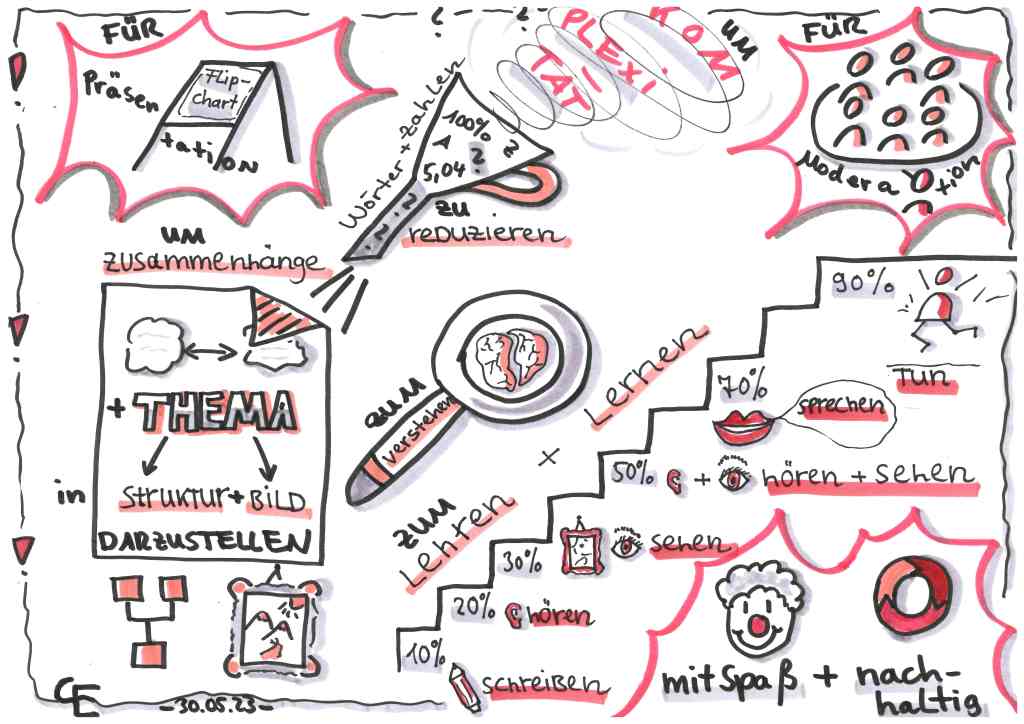 FÜR
Präsen
tation
Flip-
chart
? ?
um
KOM
PLEXI
TÄT
FÜR
Modera
tion
Wörter + Zahlen
100%
A ?
5,04 ?
? ? ?
zu
reduzieren
um
zusammenhänge
+ THEMA
in struktur + BiLD
DARZUSTELLEN
zum
verstehen
x
Lernen
zum
Lehren
90%
TUN
70%
sprechen
50% + hören + sehen
30% sehen
20% hören
10%
schreiben
mit Spaß + nach-
haltig
CE
-30.05.23-